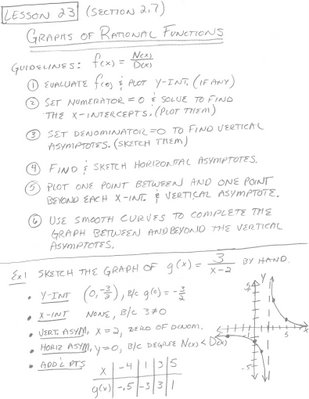 LESSON 23 (SECTION 2.7)
GRAPHS OF RATIONAL FUNCTIONS
GUIDELINES: f(x) = N(x)/D(x)
① EVALUATE f(0) & PLOT Y-INT. (IF ANY)
② SET NUMERATOR = 0 & SOLVE TO FIND
THE X-INTERCEPTS. (PLOT THEM)
③ SET DENOMINATOR = 0 TO FIND VERTICAL
ASYMPTOTES. (SKETCH THEM)
④ FIND & SKETCH HORIZONTAL ASYMPTOTES.
⑤ PLOT ONE POINT BETWEEN AND ONE POINT
BEYOND EACH X-INT. & VERTICAL ASYMPTOTE.
⑥ USE SMOOTH CURVES TO COMPLETE THE
GRAPH BETWEEN AND BEYOND THE VERTICAL
ASYMPTOTES.
Ex1 SKETCH THE GRAPH OF g(x) = 3/(x-2) BY HAND.
• Y-INT (0, -3/2), B/C g(0) = -3/2
• X-INT NONE, B/C 3≠0
• VERT. ASYM. X=2, ZERO OF DENOM.
• HORIZ ASYM. y=0, B/C DEGREE N(x) < D(x)
• ADD'L PTS
X | -4 | 1 | 3 | 5
g(x) | -.5 | -3 | 3 | 1
5 y
x
5
-5